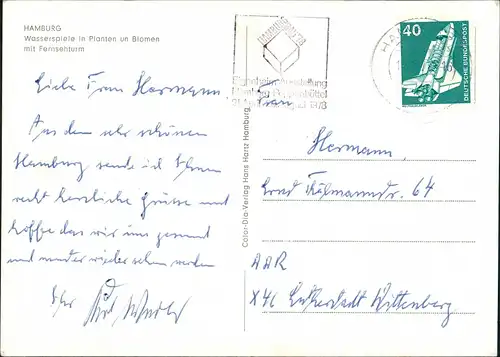 HAMBURG
Wasserspiele in Planten un Blomen
mit Fernsehturm
Liebe Frau Hermann.
Aus dem sehr schönen
Hamburg sende ich Ihnen
recht herzliche Grüsse und
hoffe das wir uns gesund
und munter wieder sehen werden
Ihr
Color-Dia-Verlag Hans Hartz Hamburg
40
DEUTSCHE BUNDESPOST
Frau
Hermann,
Ernst Thälmannstr. 64
DDR
X46 Lutherstadt Wittenberg